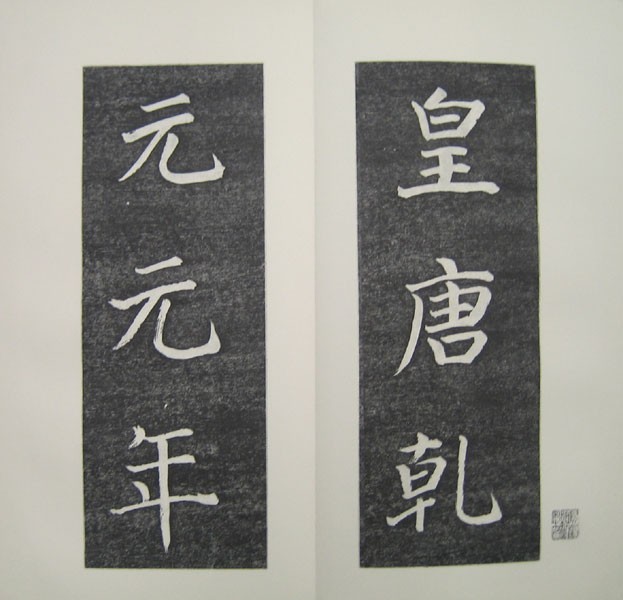 皇唐乾
元元年